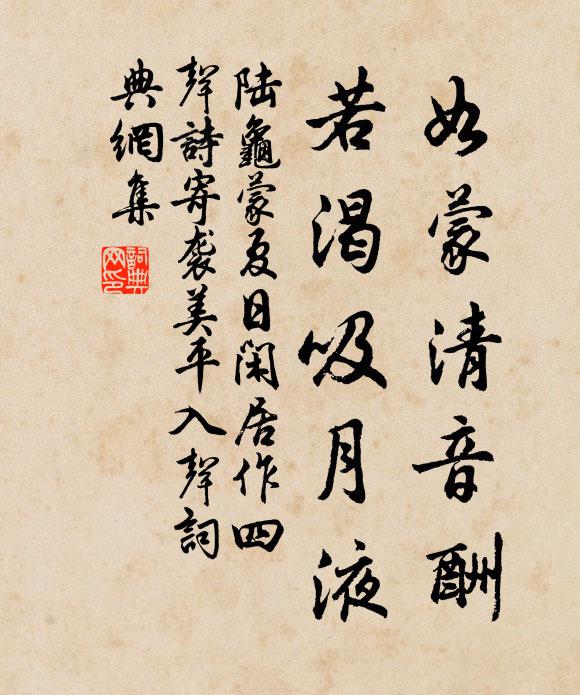 如蒙清音酬
若渴吸月液
陆龜蒙夏日閑居作四
聲詩寄袭美平入聲詞
典網集
詞典
网印